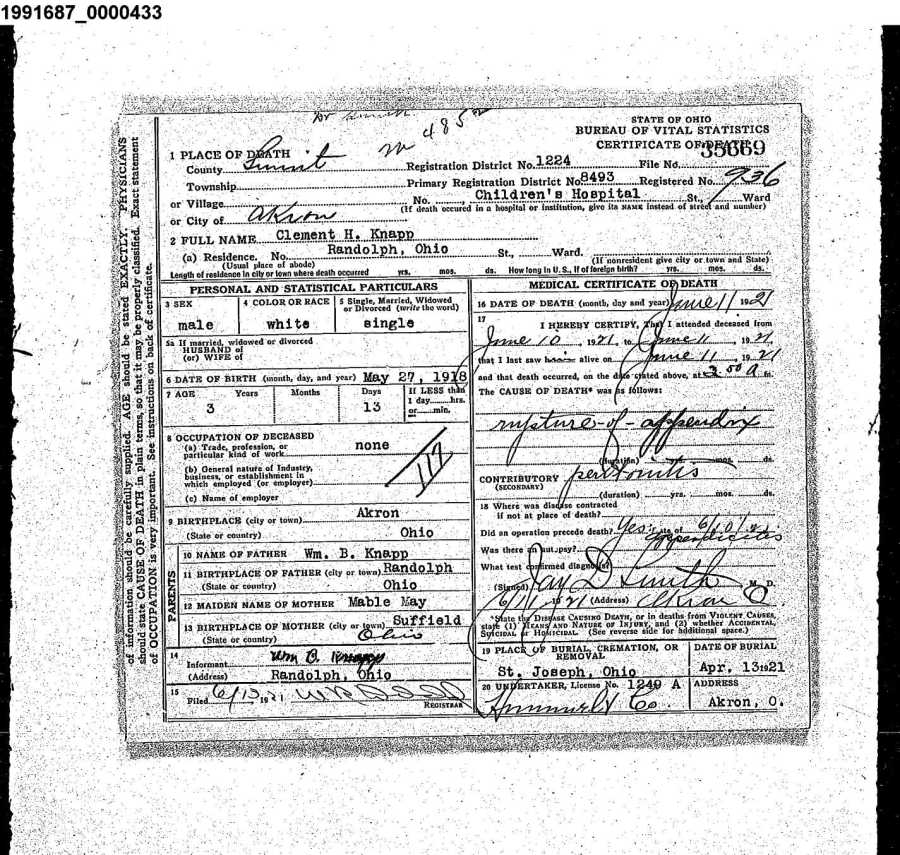 1991687_0000433
485
STATE OF OHIO
BUREAU OF VITAL STATISTICS
CERTIFICATE OF DEATH
35669
1 PLACE OF DEATH
County Summit Registration District No. 1224 File No.
Township Primary Registration District No. 8493 Registered No. 936
or Village No. Children's Hospital St., Ward
or City of Akron (If death occured in a hospital or institution, give its NAME instead of street and number)
2 FULL NAME Clement H. Knapp
(a) Residence. No. Randolph, Ohio St., Ward.
(Usual place of abode) (If nonresident give city or town and State)
Length of residence in city or town where death occurred yrs. mos. ds. How long in U. S., if of foreign birth? yrs. mos. ds.
PERSONAL AND STATISTICAL PARTICULARS
3 SEX 4 COLOR OR RACE 5 Single, Married, Widowed
or Divorced (write the word)
male white single
5a If married, widowed or divorced
HUSBAND of
(or) WIFE of
6 DATE OF BIRTH (month, day, and year) May 27, 1918
7 AGE Years Months Days If LESS than
1 day hrs.
or min.
3 13
8 OCCUPATION OF DECEASED
(a) Trade, profession, or
particular kind of work none
(b) General nature of Industry,
business, or establishment in
which employed (or employer)
117
(c) Name of employer
9 BIRTHPLACE (city or town) Akron
(State or country) Ohio
PARENTS
10 NAME OF FATHER Wm. B. Knapp
11 BIRTHPLACE OF FATHER (city or town) Randolph
(State or country) Ohio
12 MAIDEN NAME OF MOTHER Mable May
13 BIRTHPLACE OF MOTHER (city or town) Suffield
(State or country) Ohio
14
Informant Wm B. Knapp
(Address) Randolph, Ohio
15
Filed 6/13, 1921
REGISTRAR
MEDICAL CERTIFICATE OF DEATH
16 DATE OF DEATH (month, day and year) June 11 1921
17
I HEREBY CERTIFY, That I attended deceased from
June 10, 1921, to June 11, 1921,
that I last saw him alive on June 11, 1921
and that death occurred, on the date stated above, at 3 00 A m.
The CAUSE OF DEATH* was as follows:
rupture of appendix
(duration) yrs. mos. ds.
CONTRIBUTORY peritonitis
(SECONDARY)
(duration) yrs. mos. ds.
18 Where was disease contracted
if not at place of death?
Did an operation precede death? Yes Date of
appendicitis
Was there an autopsy?
What test confirmed diagnosis?
(Signed) Jay D Smith M. D.
6/11 1921 (Address) Akron O
*State the DISEASE CAUSING DEATH, or in deaths from VIOLENT CAUSES,
state (1) MEANS AND NATURE OF INJURY; and (2) whether ACCIDENTAL,
SUICIDAL or HOMICIDAL (See reverse side for additional space.)
19 PLACE OF BURIAL, CREMATION, OR
REMOVAL
DATE OF BURIAL
St. Joseph, Ohio Apr. 13 1921
20 UNDERTAKER, License No. 1249 A ADDRESS
Co. Akron, O.
of information should be carefully supplied. AGE should be stated EXACTLY. PHYSICIANS
should state CAUSE OF DEATH in plain terms, so that it may be properly classified. Exact statement
of OCCUPATION is very important. See instructions on back of certificate.